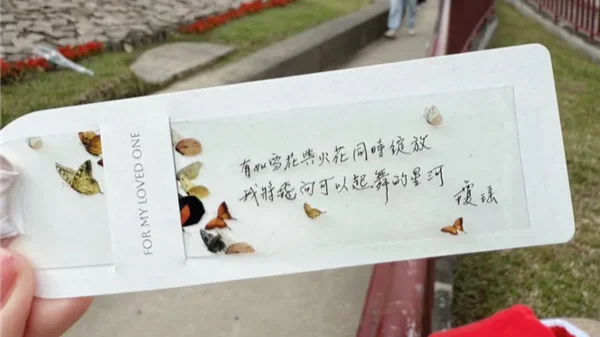 FOR MY LOVED ONE
有如雪花與火花同時綻放
我將飛向可以起舞的星河
瓊瑤